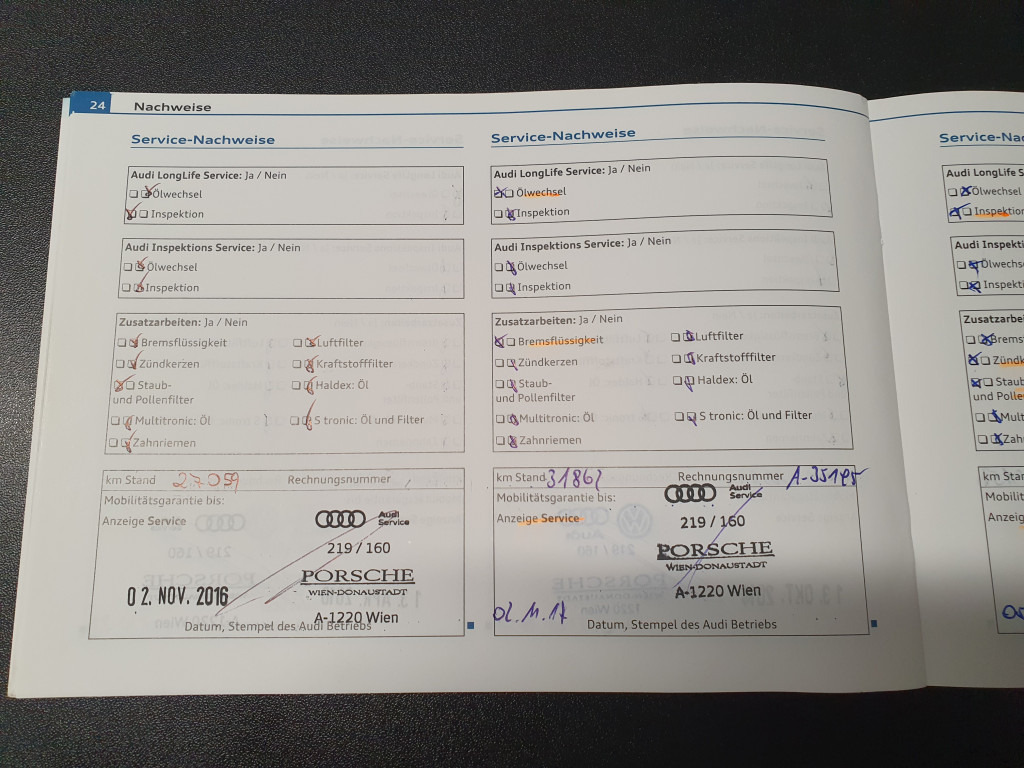 24 Nachweise
Service-Nachweise
Audi LongLife Service: Ja / Nein
Ölwechsel
Inspektion
Audi Inspektions Service: Ja / Nein
Ölwechsel
Inspektion
Zusatzarbeiten: Ja / Nein
Bremsflüssigkeit Luftfilter
Zündkerzen Kraftstofffilter
Staub- Haldex: Öl
und Pollenfilter
Multitronic: Öl S tronic: Öl und Filter
Zahnriemen
km Stand 27059 Rechnungsnummer
Mobilitätsgarantie bis:
Anzeige Service
Audi
Service
219 / 160
PORSCHE
WIEN-DONAUSTADT
02. NOV. 2016
A-1220 Wien
Datum, Stempel des Audi Betriebs
Service-Nachweise
Audi LongLife Service: Ja / Nein
Ölwechsel
Inspektion
Audi Inspektions Service: Ja / Nein
Ölwechsel
Inspektion
Zusatzarbeiten: Ja / Nein
Bremsflüssigkeit Luftfilter
Zündkerzen Kraftstofffilter
Staub- Haldex: Öl
und Pollenfilter
Multitronic: Öl S tronic: Öl und Filter
Zahnriemen
km Stand Rechnungsnummer
Mobilitätsgarantie bis:
Anzeige Service
Audi
Service
219 / 160
PORSCHE
WIEN-DONAUSTADT
A-1220 Wien
Datum, Stempel des Audi Betriebs
Service-Na
Audi LongLife S
Ölwechsel
Inspektion
Audi Inspekti
Ölwechs
Inspekti
Zusatzarbei
Brems
Zündk
Staub
und Polle
Mult
Zah
km Stan
Mobili
Anzeig